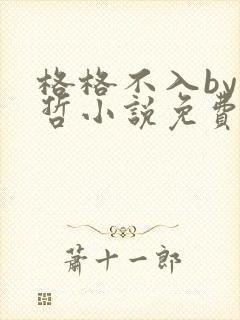 格格不入by
哲小說免費
蕭十一郎